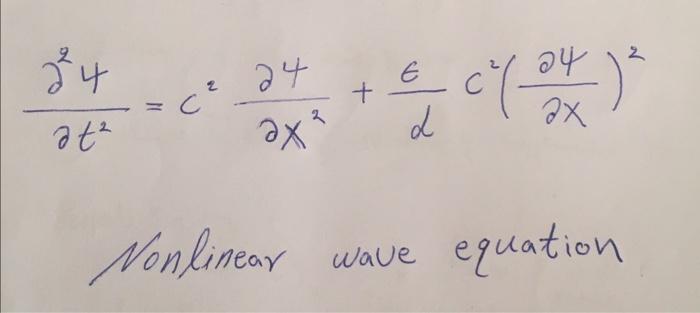 ∂²ψ/∂t² = c² ∂ψ/∂x² + ϵ/d c²(∂ψ/∂x)²
Nonlinear wave equation